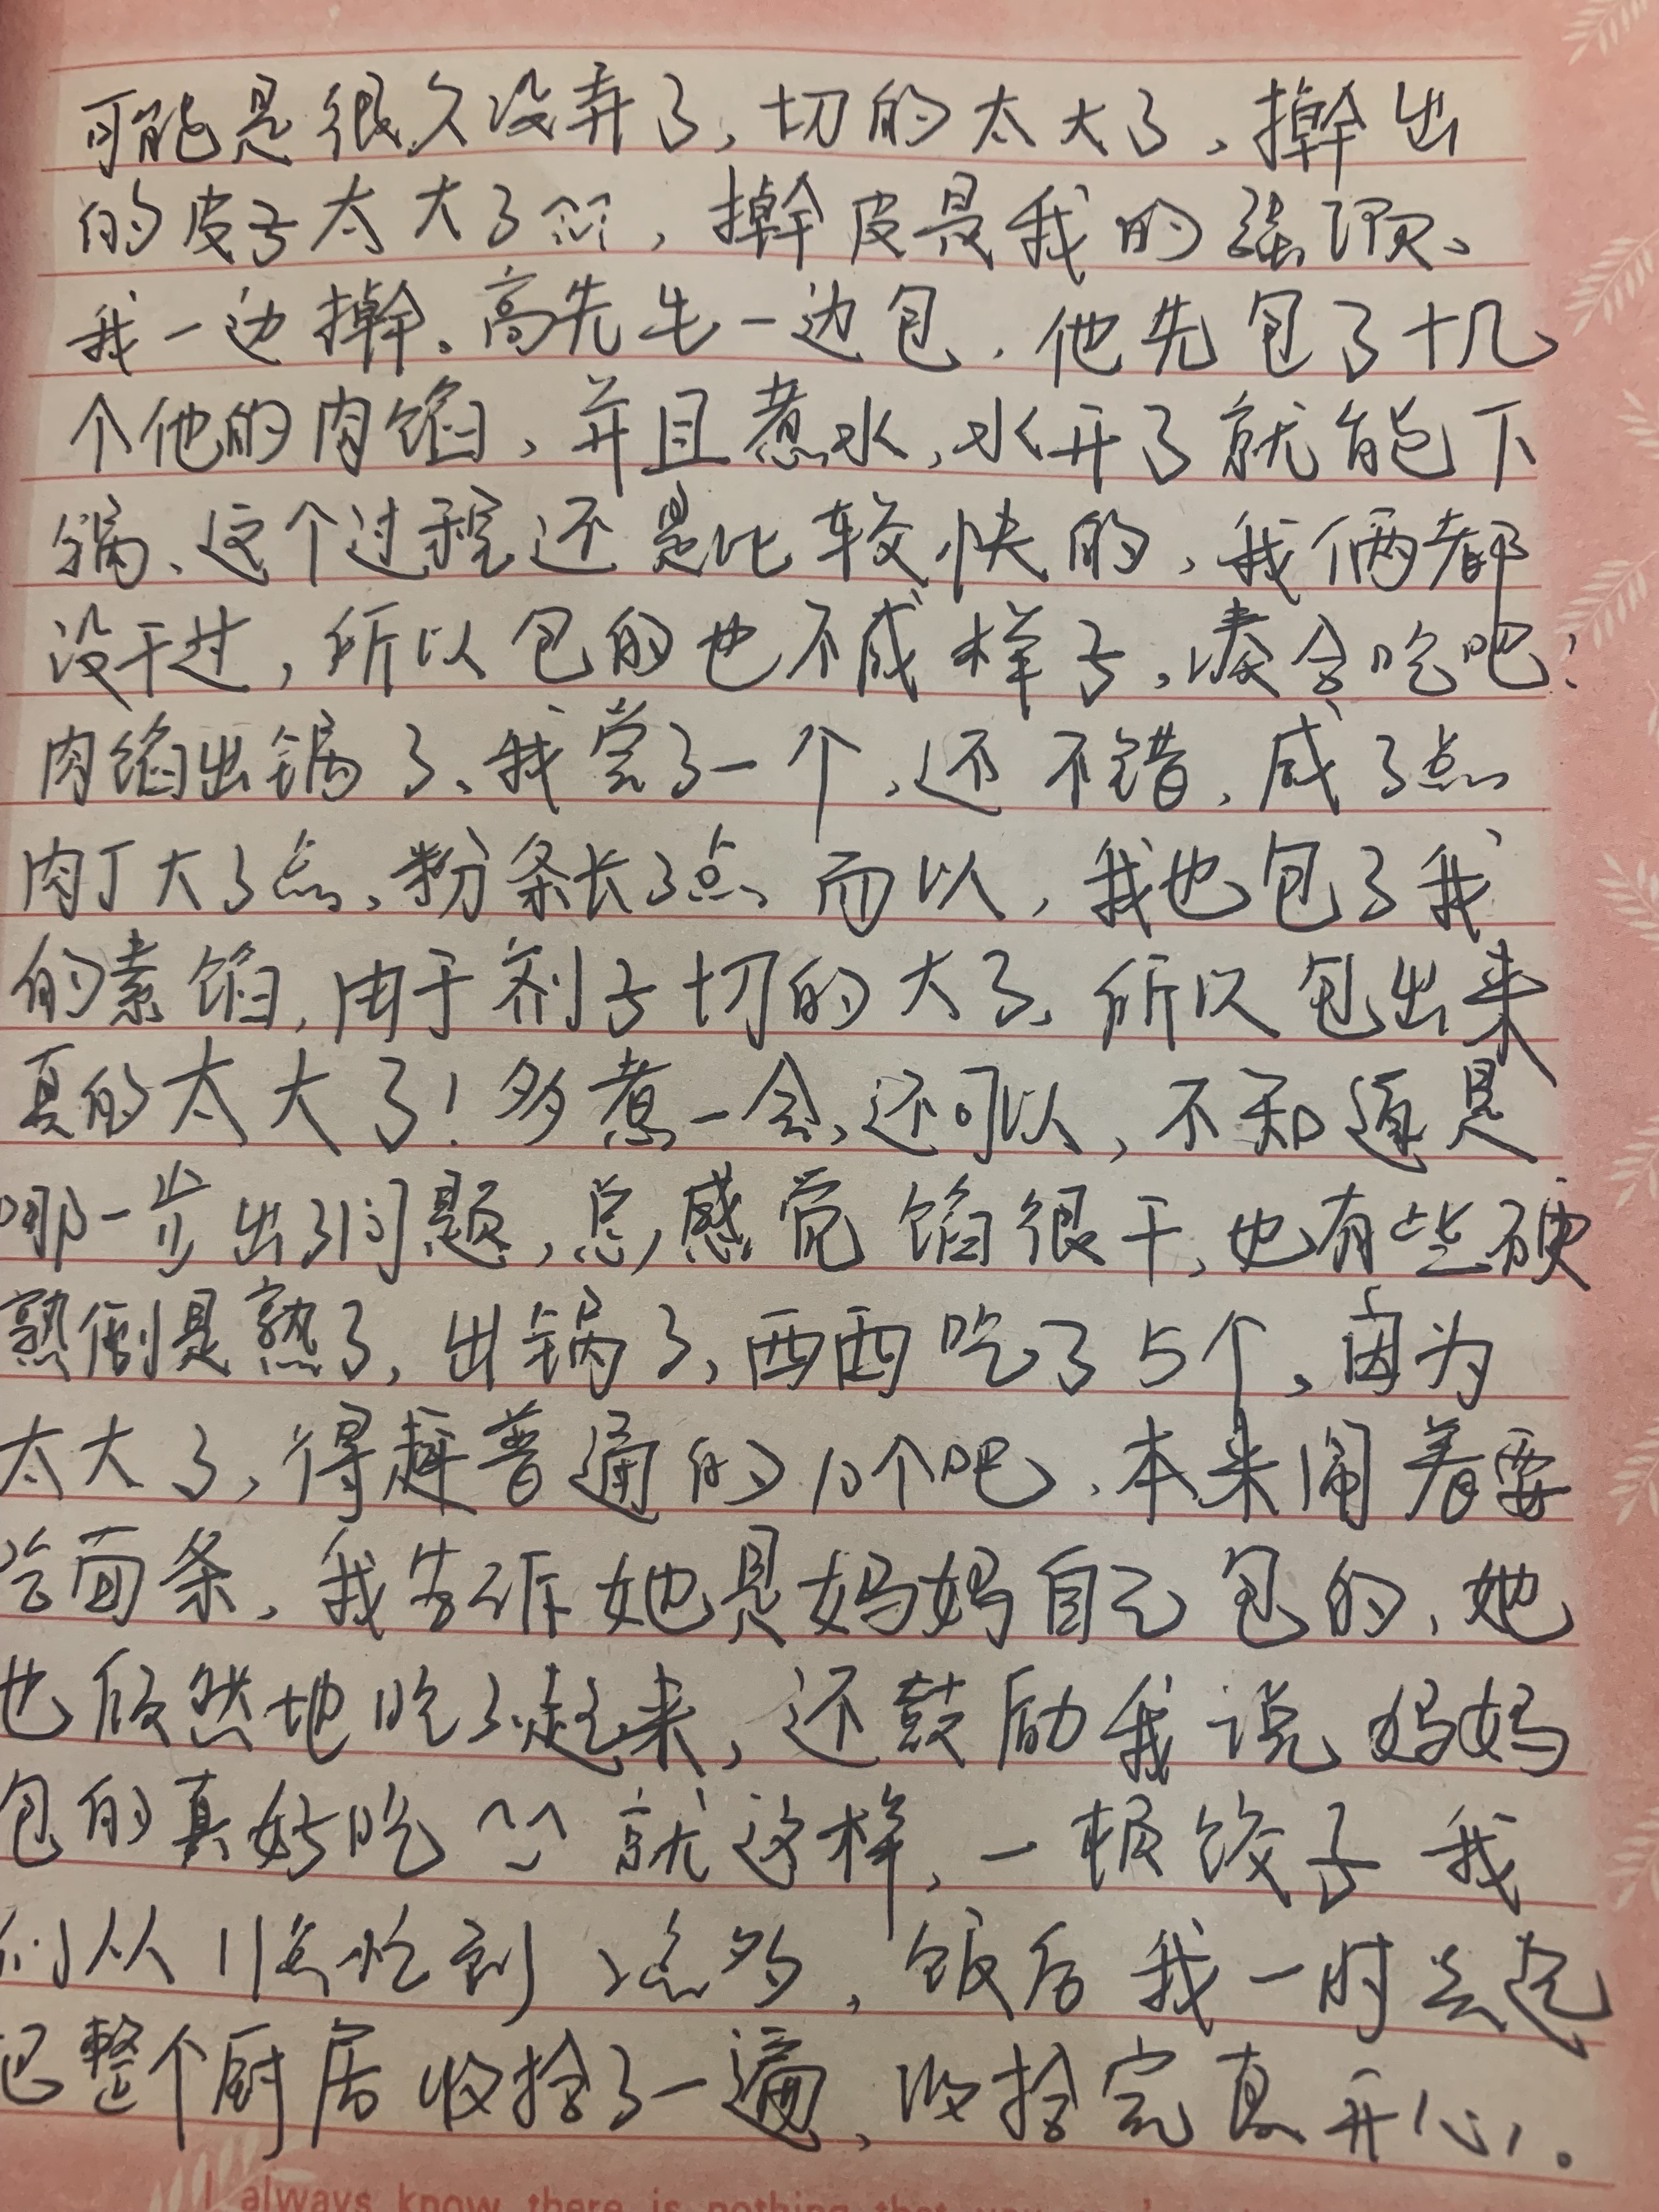 可能是很久没弄了,切的太大了,擀出
的皮子太大了^^,擀皮是我的强项、
我一边擀。高先生一边包,他先包了十几
个他的肉馅,并且煮水,水开了就能下
锅、这个过程还是比较快的,我俩都
没干过,所以包的也不成样子,凑合吃吧!
肉馅出锅了、我尝了一个,还不错,咸了点
肉丁大了点、粉条长了点而以,我也包了我
的素馅,由于剂子切的大了、所以包出来
真的太大了!多煮一会还可以,不知道是
哪一步出了问题,总感觉馅很干,也有些硬
熟倒是熟了,出锅了,西西吃了5个、因为
太大了,得赶普通的10个吧、本来闹着要
吃面条,我告诉她是妈妈自己包的,她
也欣然地吃了起来,还鼓励我说妈妈
包的真好吃^^就这样,一顿饺子我
们从11点吃到2点多,饭后我一时兴起
把整个厨房收拾了一遍,收拾完真开心。
I always know there is nothing that you